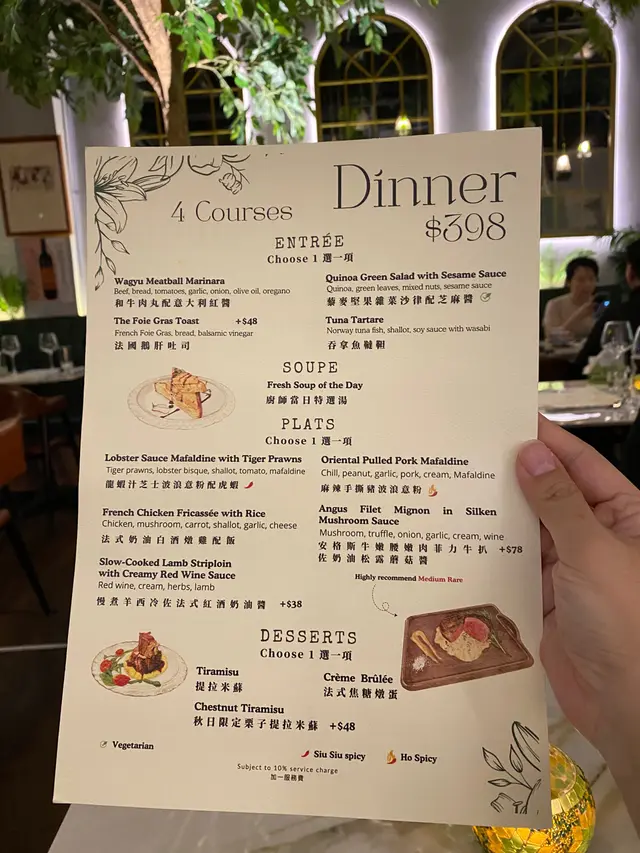 4 Courses
Dinner
$398
ENTRÉE
Choose 1 選一項
Wagyu Meatball Marinara
Beef, bread, tomatoes, garlic, onion, olive oil, oregano
和牛肉丸配意大利紅醬
Quinoa Green Salad with Sesame Sauce
Quinoa, green leaves, mixed nuts, sesame sauce
藜麥堅果雜菜沙律配芝麻醬
The Foie Gras Toast +$48
French Foie Gras, bread, balsamic vinegar
法國鵝肝吐司
Tuna Tartare
Norway tuna fish, shallot, soy sauce with wasabi
吞拿魚韃靼
SOUPE
Fresh Soup of the Day
廚師當日特選湯
PLATS
Choose 1 選一項
Lobster Sauce Mafaldine with Tiger Prawns
Tiger prawns, lobster bisque, shallot, tomato, mafaldine
龍蝦汁芝士波浪意粉配虎蝦
Oriental Pulled Pork Mafaldine
Chill, peanut, garlic, pork, cream, Mafaldine
麻辣手撕豬波浪意粉
French Chicken Fricassée with Rice
Chicken, mushroom, carrot, shallot, garlic, cheese
法式奶油白酒燉雞配飯
Angus Filet Mignon in Silken
Mushroom Sauce
Mushroom, truffle, onion, garlic, cream, wine
安格斯牛嫩腰嫩肉菲力牛扒 +$78
佐奶油松露蘑菇醬
Slow-Cooked Lamb Striploin
with Creamy Red Wine Sauce
Red wine, cream, herbs, lamb
慢煮羊西冷佐法式紅酒奶油醬 +$38
Highly recommend Medium Rare
DESSERTS
Choose 1 選一項
Tiramisu
提拉米蘇
Crème Brûlée
法式焦糖燉蛋
Chestnut Tiramisu
秋日限定栗子提拉米蘇 +$48
Vegetarian
Siu Siu spicy
Ho Spicy
Subject to 10% service charge
加一服務費